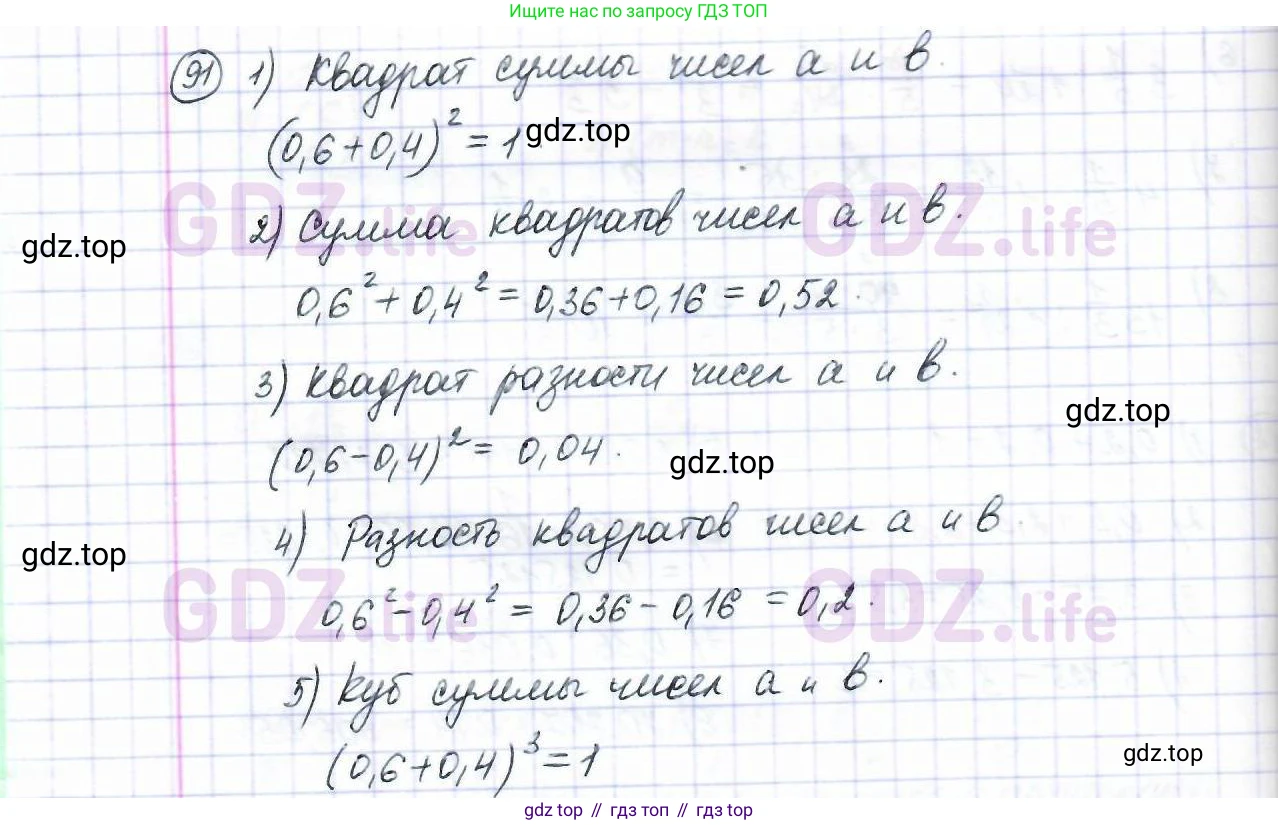 Ищите нас по запросу ГДЗ ТОП
91 1) Квадрат суммы чисел а и в.
(0,6+0,4)² = 1 gdz.top
GDZ.life GDZ.life
2) Сумма квадратов чисел а и в.
gdz.top
0,6² + 0,4² = 0,36+0,16 = 0,52.
3) Квадрат разности чисел а и в.
gdz.top
(0,6-0,4)² = 0,04.
gdz.top
4) Разность квадратов чисел а и в.
gdz.top
GDZ.life GDZ.life
0,6² - 0,4² = 0,36 - 0,16 = 0,2.
5) Куб суммы чисел а и в.
(0,6+0,4)³ = 1
gdz.top
gdz top // гдз топ // gdz top